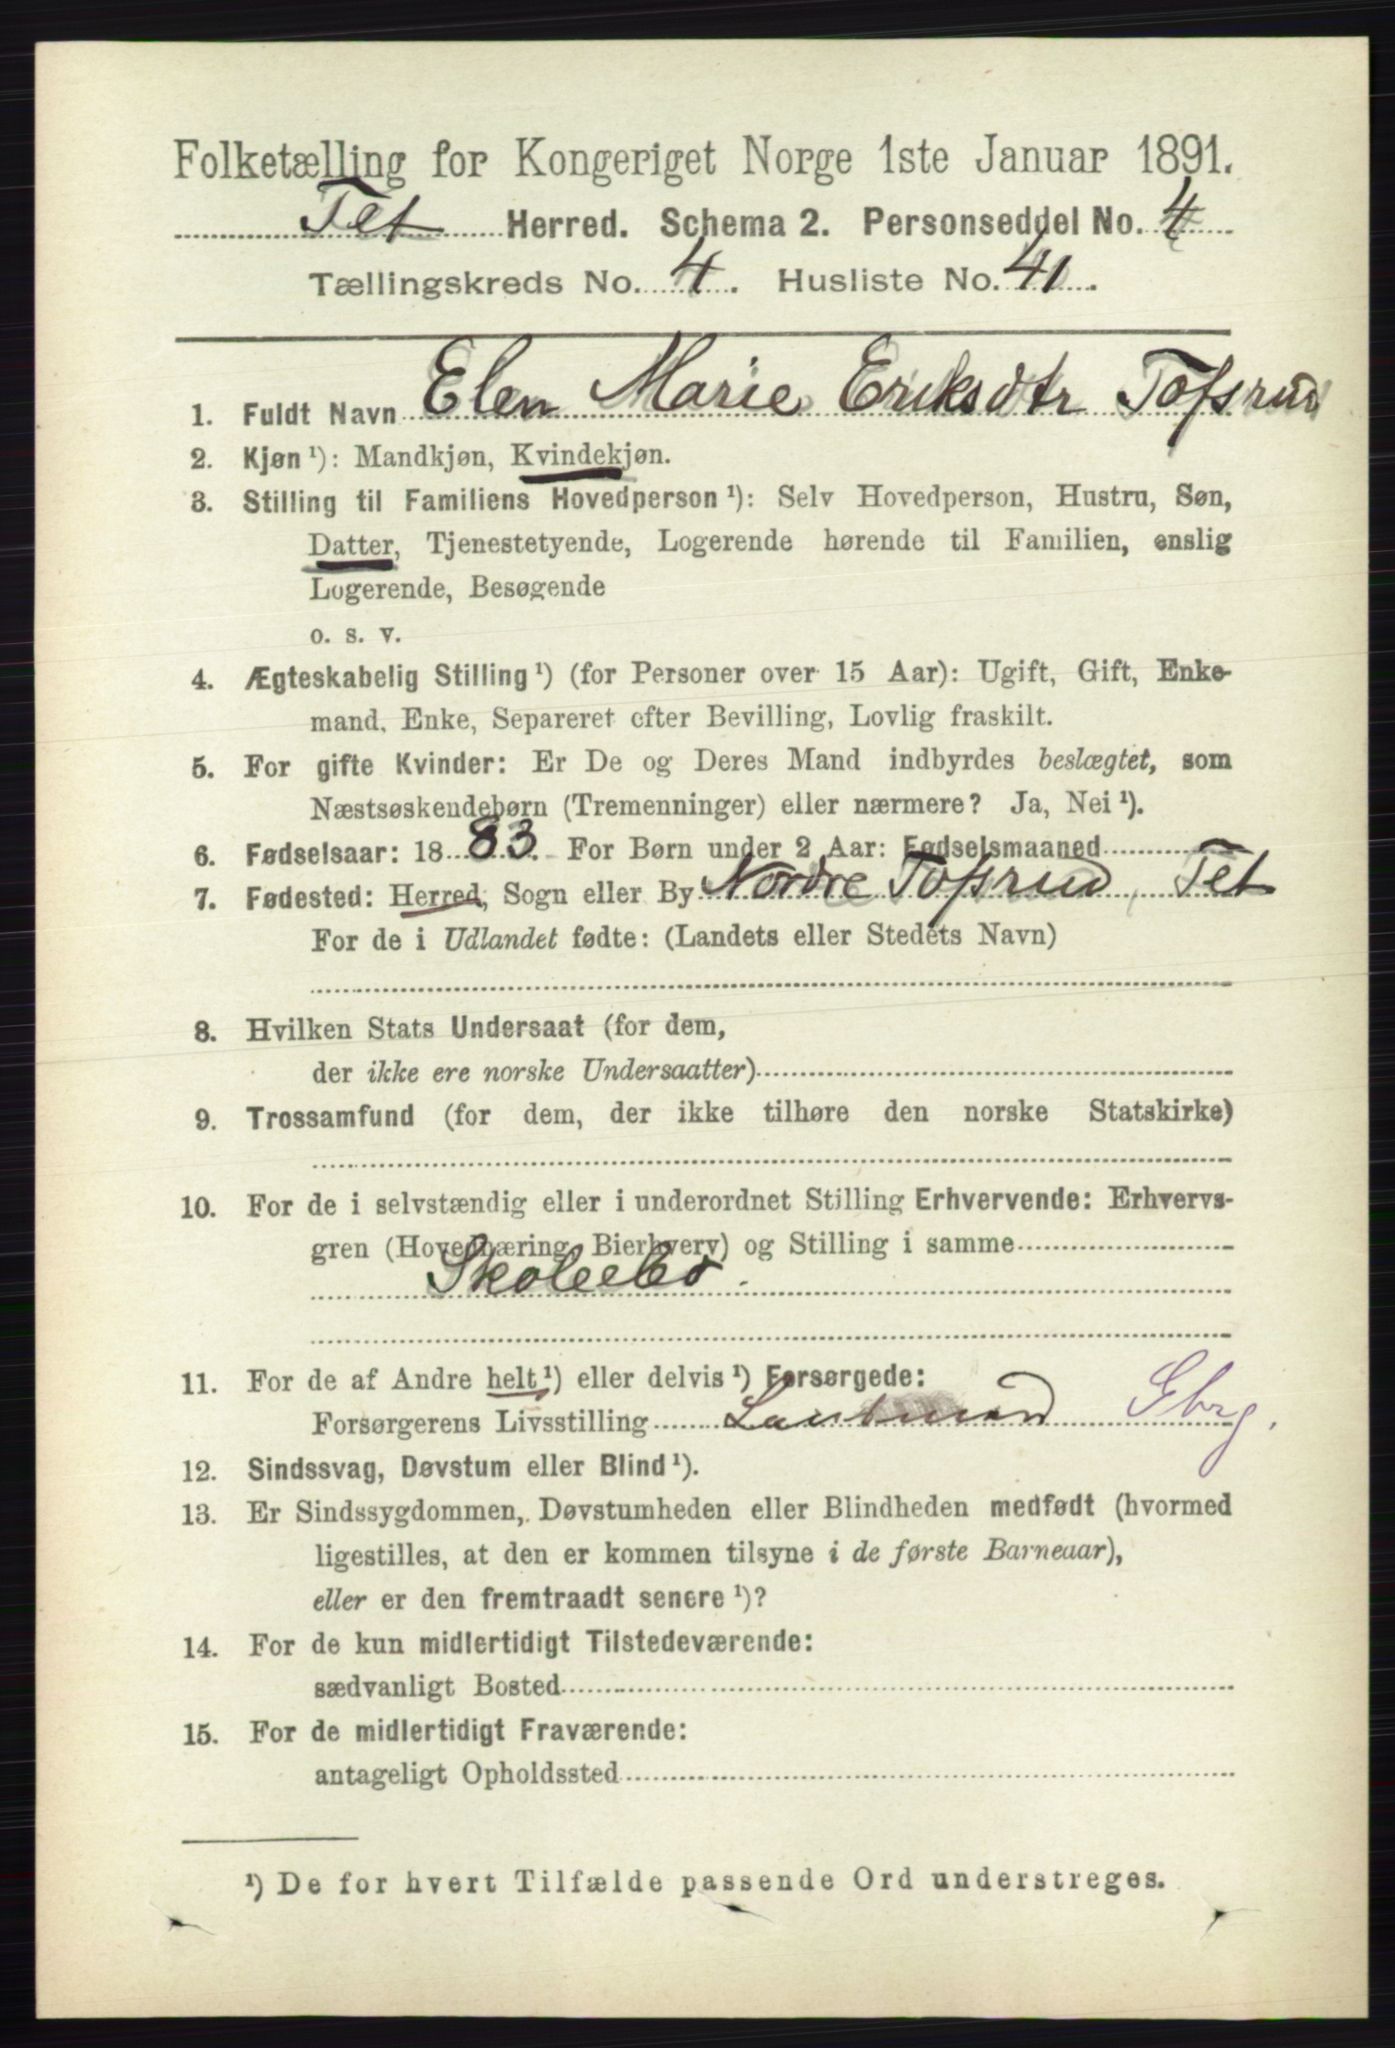 Folketælling for Kongeriget Norge 1ste Januar 1891.
Tet Herred. Schema 2. Personseddel No. 4
Tællingskreds No. 4. Husliste No. 41.
1. Fuldt Navn Elen Marie Eriksdtr Tofsrud
2. Kjøn ¹): Mandkjøn, Kvindekjøn.
3. Stilling til Familiens Hovedperson ¹): Selv Hovedperson, Hustru, Søn,
Datter, Tjenestetyende, Logerende hørende til Familien, enslig
Logerende, Besøgende
o. s. v.
4. Ægteskabelig Stilling ¹) (for Personer over 15 Aar): Ugift, Gift, Enke-
mand, Enke, Separeret efter Bevilling, Lovlig fraskilt.
5. For gifte Kvinder: Er De og Deres Mand indbyrdes beslægtet, som
Næstsøskendebørn (Tremenninger) eller nærmere? Ja, Nei ¹).
6. Fødselsaar: 1883. For Børn under 2 Aar: Fødselsmaaned
7. Fødested: Herred, Sogn eller By Nordre Tofsrud, Tet
For de i Udlandet fødte: (Landets eller Stedets Navn)
8. Hvilken Stats Undersaat (for dem,
der ikke ere norske Undersaatter)
9. Trossamfund (for dem, der ikke tilhøre den norske Statskirke)
10. For de i selvstændig eller i underordnet Stilling Erhvervende: Erhvervs-
gren (Hovednæring, Bierhverv) og Stilling i samme
Skoleelev.
11. For de af Andre helt ¹) eller delvis ¹) Forsørgede:
Forsørgerens Livsstilling Gbrg.
12. Sindssvag, Døvstum eller Blind ¹).
13. Er Sindssygdommen, Døvstumheden eller Blindheden medfødt (hvormed
ligestilles, at den er kommen tilsyne i de første Barneaar),
eller er den fremtraadt senere ¹)?
14. For de kun midlertidigt Tilstedeværende:
sædvanligt Bosted
15. For de midlertidigt Fraværende:
antageligt Opholdssted
¹) De for hvert Tilfælde passende Ord understreges.